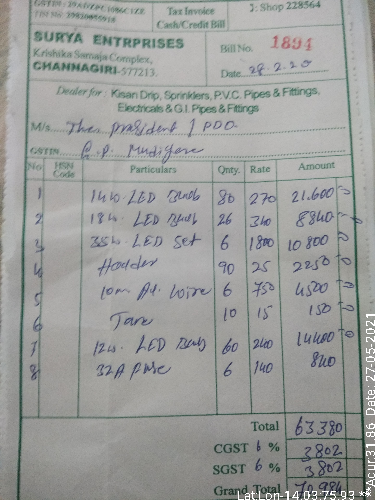 Tax Invoice
: Shop 228564
Cash/Credit Bill
SURYA ENTRPRISES
Krishika Samaja Complex,
CHANNAGIRI-577213.
Bill No. 1894
Date 28.2.20
Dealer for : Kisan Drip, Sprinklers, P.V.C. Pipes & Fittings,
Electricals & G.I. Pipes & Fittings
M/s The president / PDO
GSTIN G.P. Mudigere
No HSN Code Particulars Qnty. Rate Amount
1 14w. LED Bulb 80 270 21.600=0
2 18w. LED Bulb 26 340 8840=0
3 35w. LED Set 6 1800 10800=0
4 Hodder 90 25 2250=0
5 10m Al. Wire 6 750 4500=0
6 Tare 10 15 150=0
7 12w. LED Bulb 60 240 14400=0
8 32A 6 140 840
Total 63380
CGST 6 % 3802
SGST 6 % 3802
Grand Total 70984
Lat,Lon-14.03,75.93 **Acur:31.86 Date: 27-05-2021